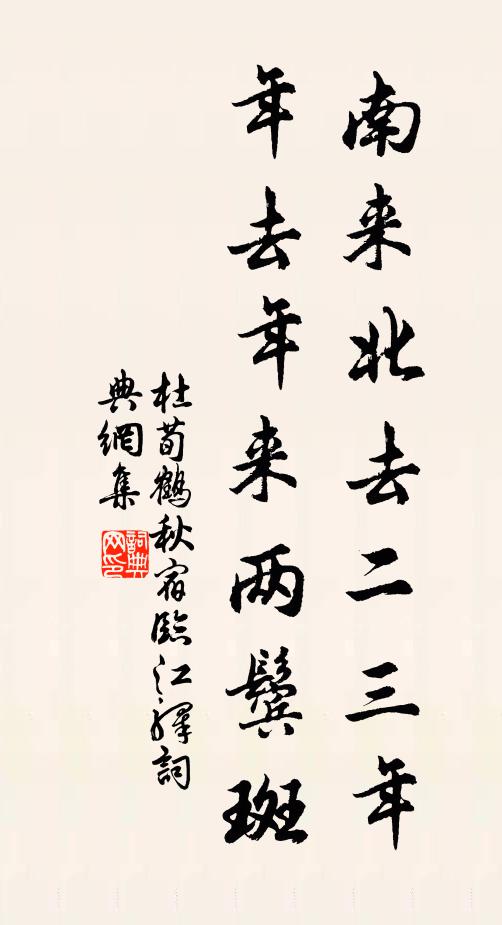 南来北去二三年
年去年来两鬓斑
杜荀鹤秋宿臨江驛詞
典網集
詞典网印